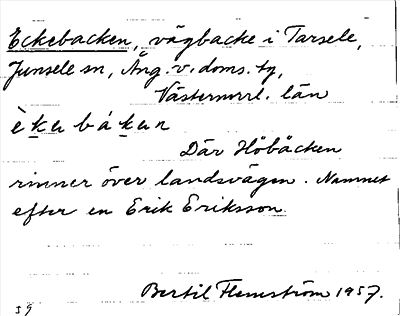 Eckebacken, vägbacke i Tarsele,
Junsele sn, Ång. v. doms. tg,
Västernorrl. län
èke bákun
Där Höbäcken
rinner över landsvägen. Namnet
efter en Erik Eriksson.
Bertil Flemström 1957.